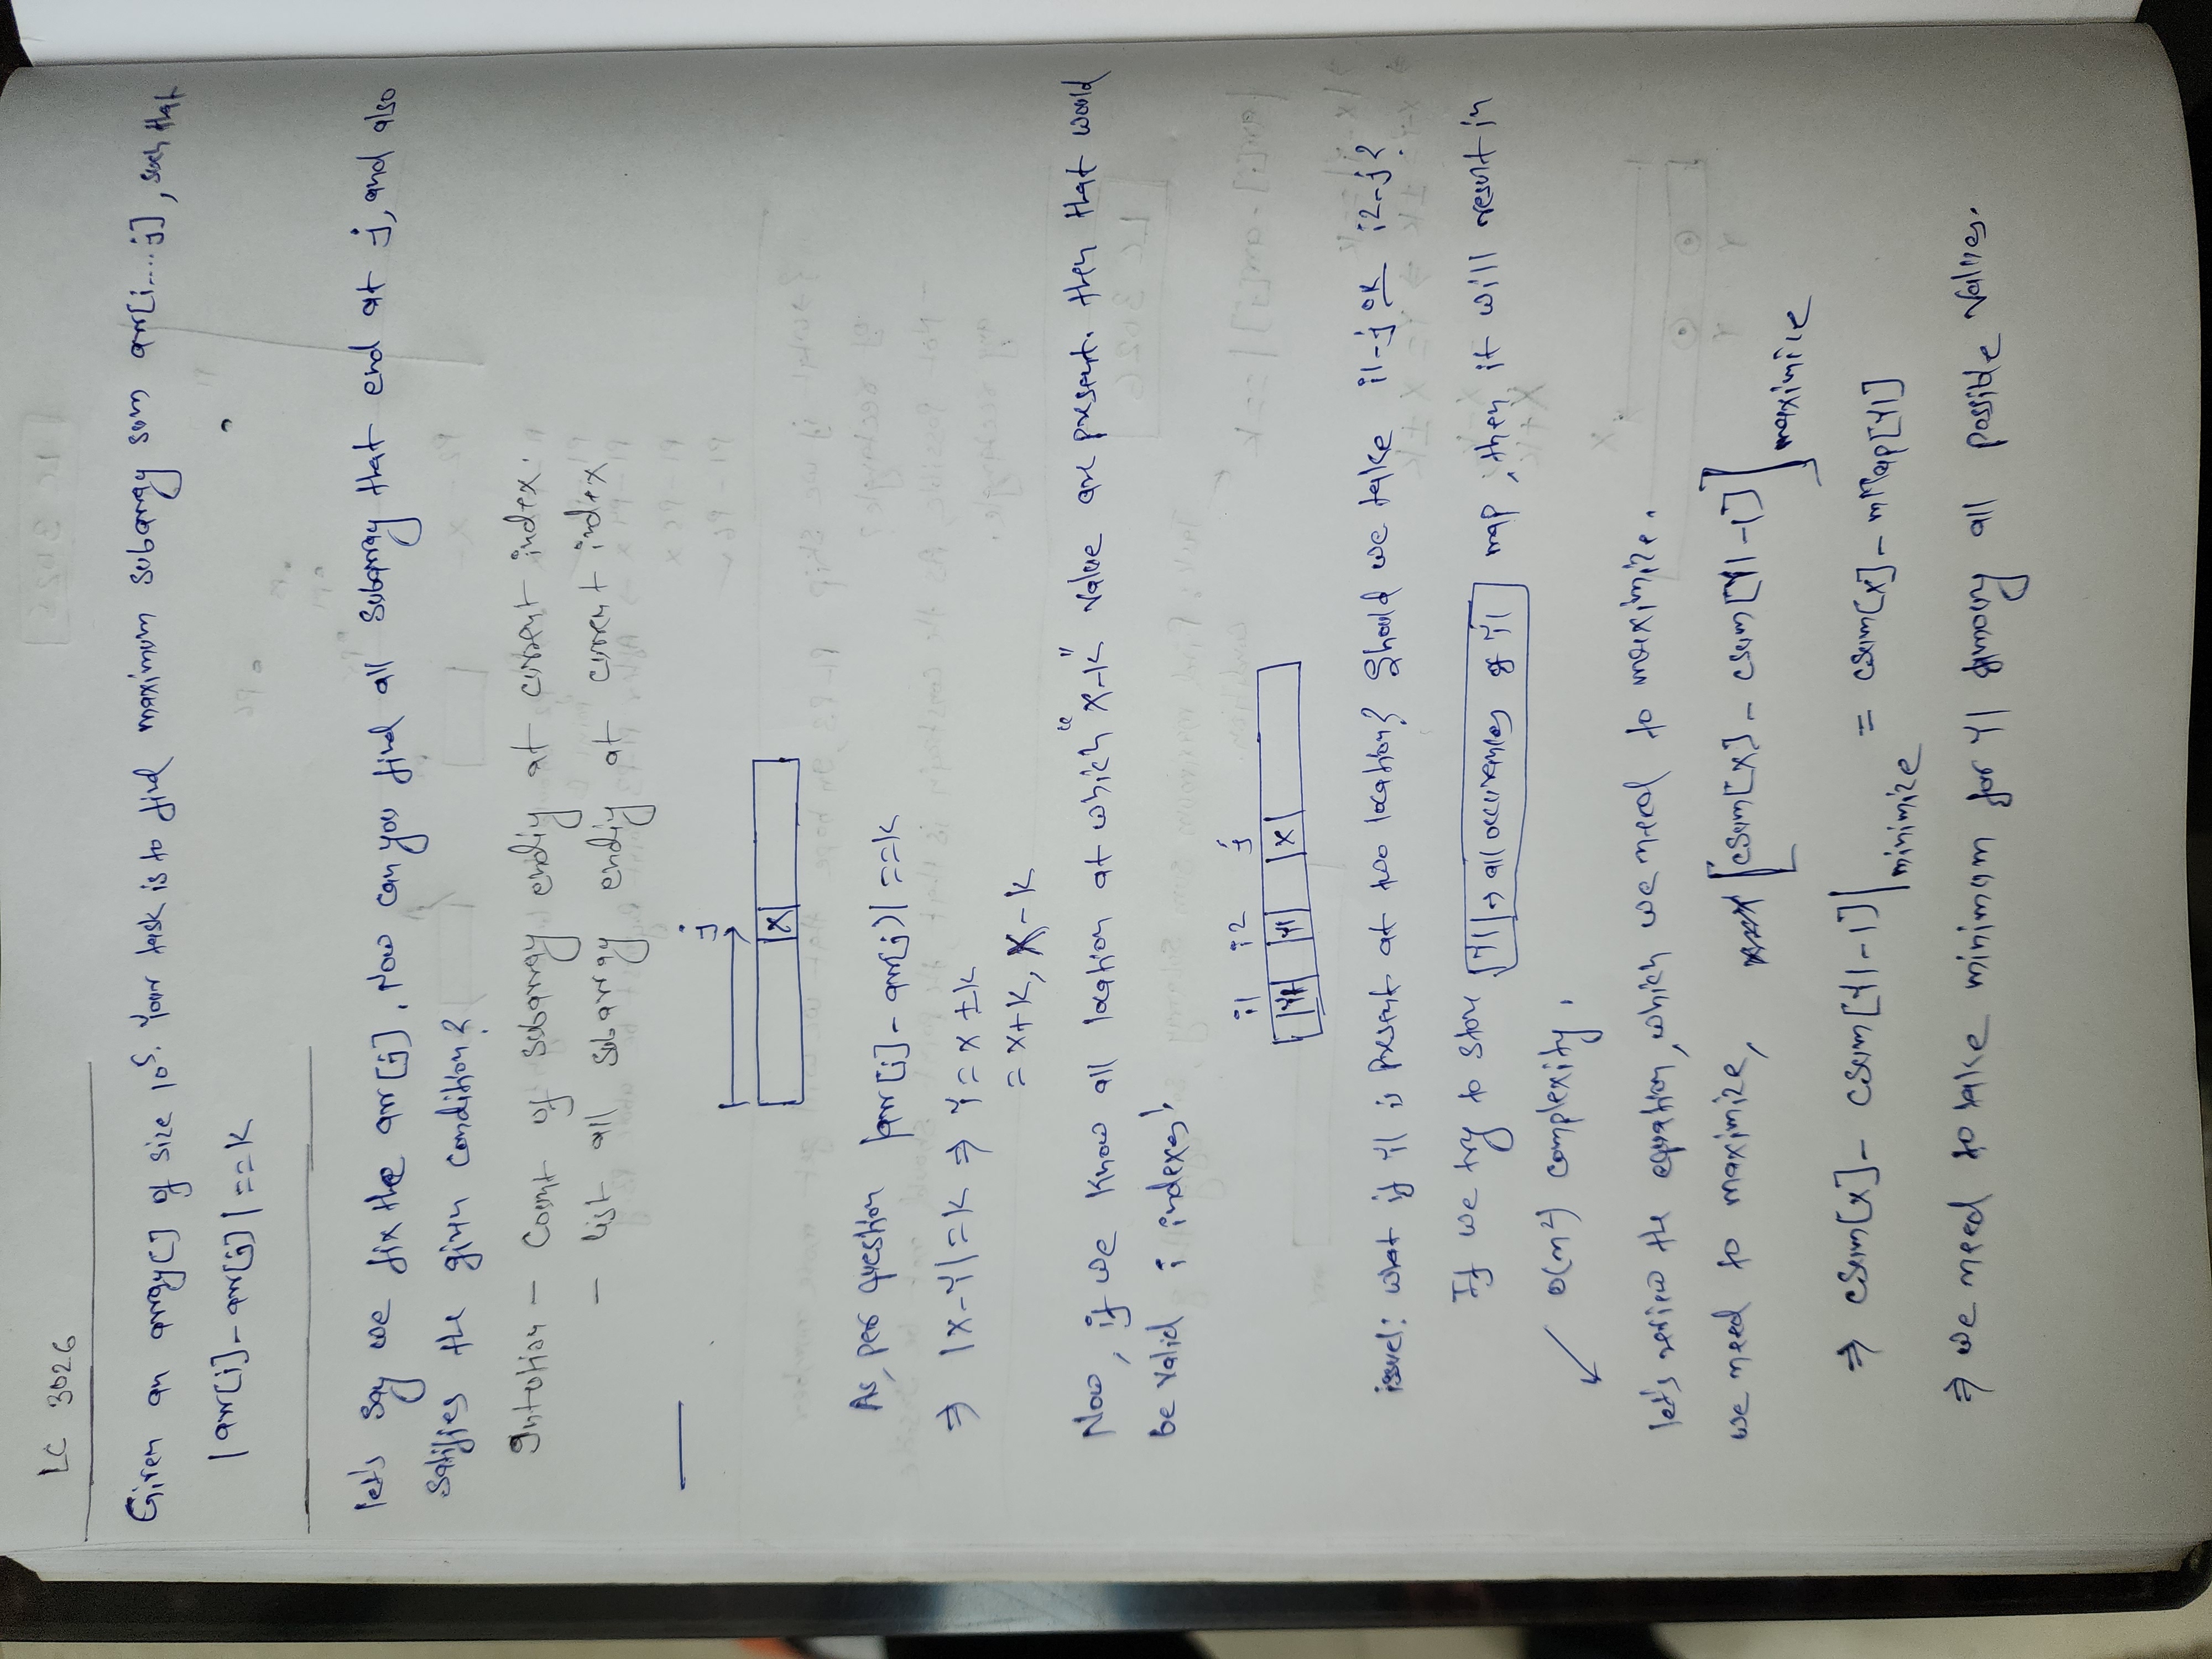 LC 3026
Given an array[] of size 10^5. Your task is to find maximum subarray sum arr[i....j], such that
|arr[i]-arr[j]|==K
let's say we fix the arr[j]. Now can you find all subarray that end at j, and also
satifies the given condition?
Intution - Count of subarray endig at current index.
- list all subarray endig at current index
j
|x|
As per question |arr[i]-arr[j]|==K
⇒ |x-y|=K ⇒ Y=x±K
= x+K, x-K
Now, if we know all location at which "x-k" value are present. then that would
be valid i indexes!
i1 i2 j
|Y1| |Y1| |x|
issue1: what if y1 is present at two location? Should we take i1-j or i2-j?
If we try to store Y1 → all occurrences of Y1 map, then it will result in
O(n^2) complexity.
let's review the equation, which we need to maximize.
we need to maximize, [csum[x] - csum[Y1-1]] maximize
⇒ csum[x] - csum[Y1-1]]minimize = csum[x] - mMap[Y1]
⇒ we need to take minimum for Y1 among all possible values.